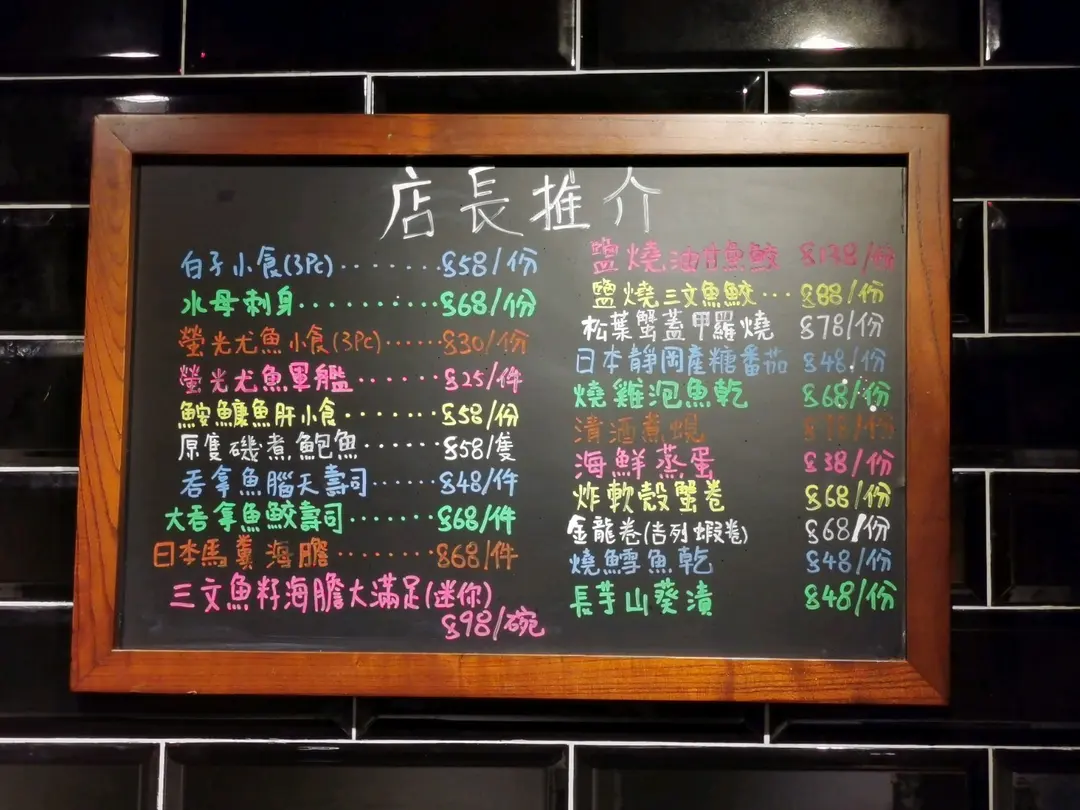 店長推介
白子小食(3Pc)........$58/份
水母刺身...........$68/份
螢光尤魚小食(3Pc)......$30/份
螢光尤魚軍艦.......$25/件
鮟鱇魚肝小食.......$58/份
原隻磯煮鮑魚......$58/隻
吞拿魚腦天壽司......$48/件
大吞拿魚鮫壽司.......$68/件
日本馬糞海膽.........$68/件
三文魚籽海膽大滿足(迷你)
$98/碗
鹽燒油甘魚鮫 $138/份
鹽燒三文魚鮫... $88/份
松葉蟹蓋甲羅燒 $78/份
日本靜岡產糖番茄 $48/份
燒雞泡魚乾 $68/份
清酒煮蜆
海鮮蒸蛋 $38/份
炸軟殼蟹卷 $68/份
金龍卷(吉列蝦卷) $68/份
燒鱈魚乾 $48/份
長芋山葵漬 $48/份